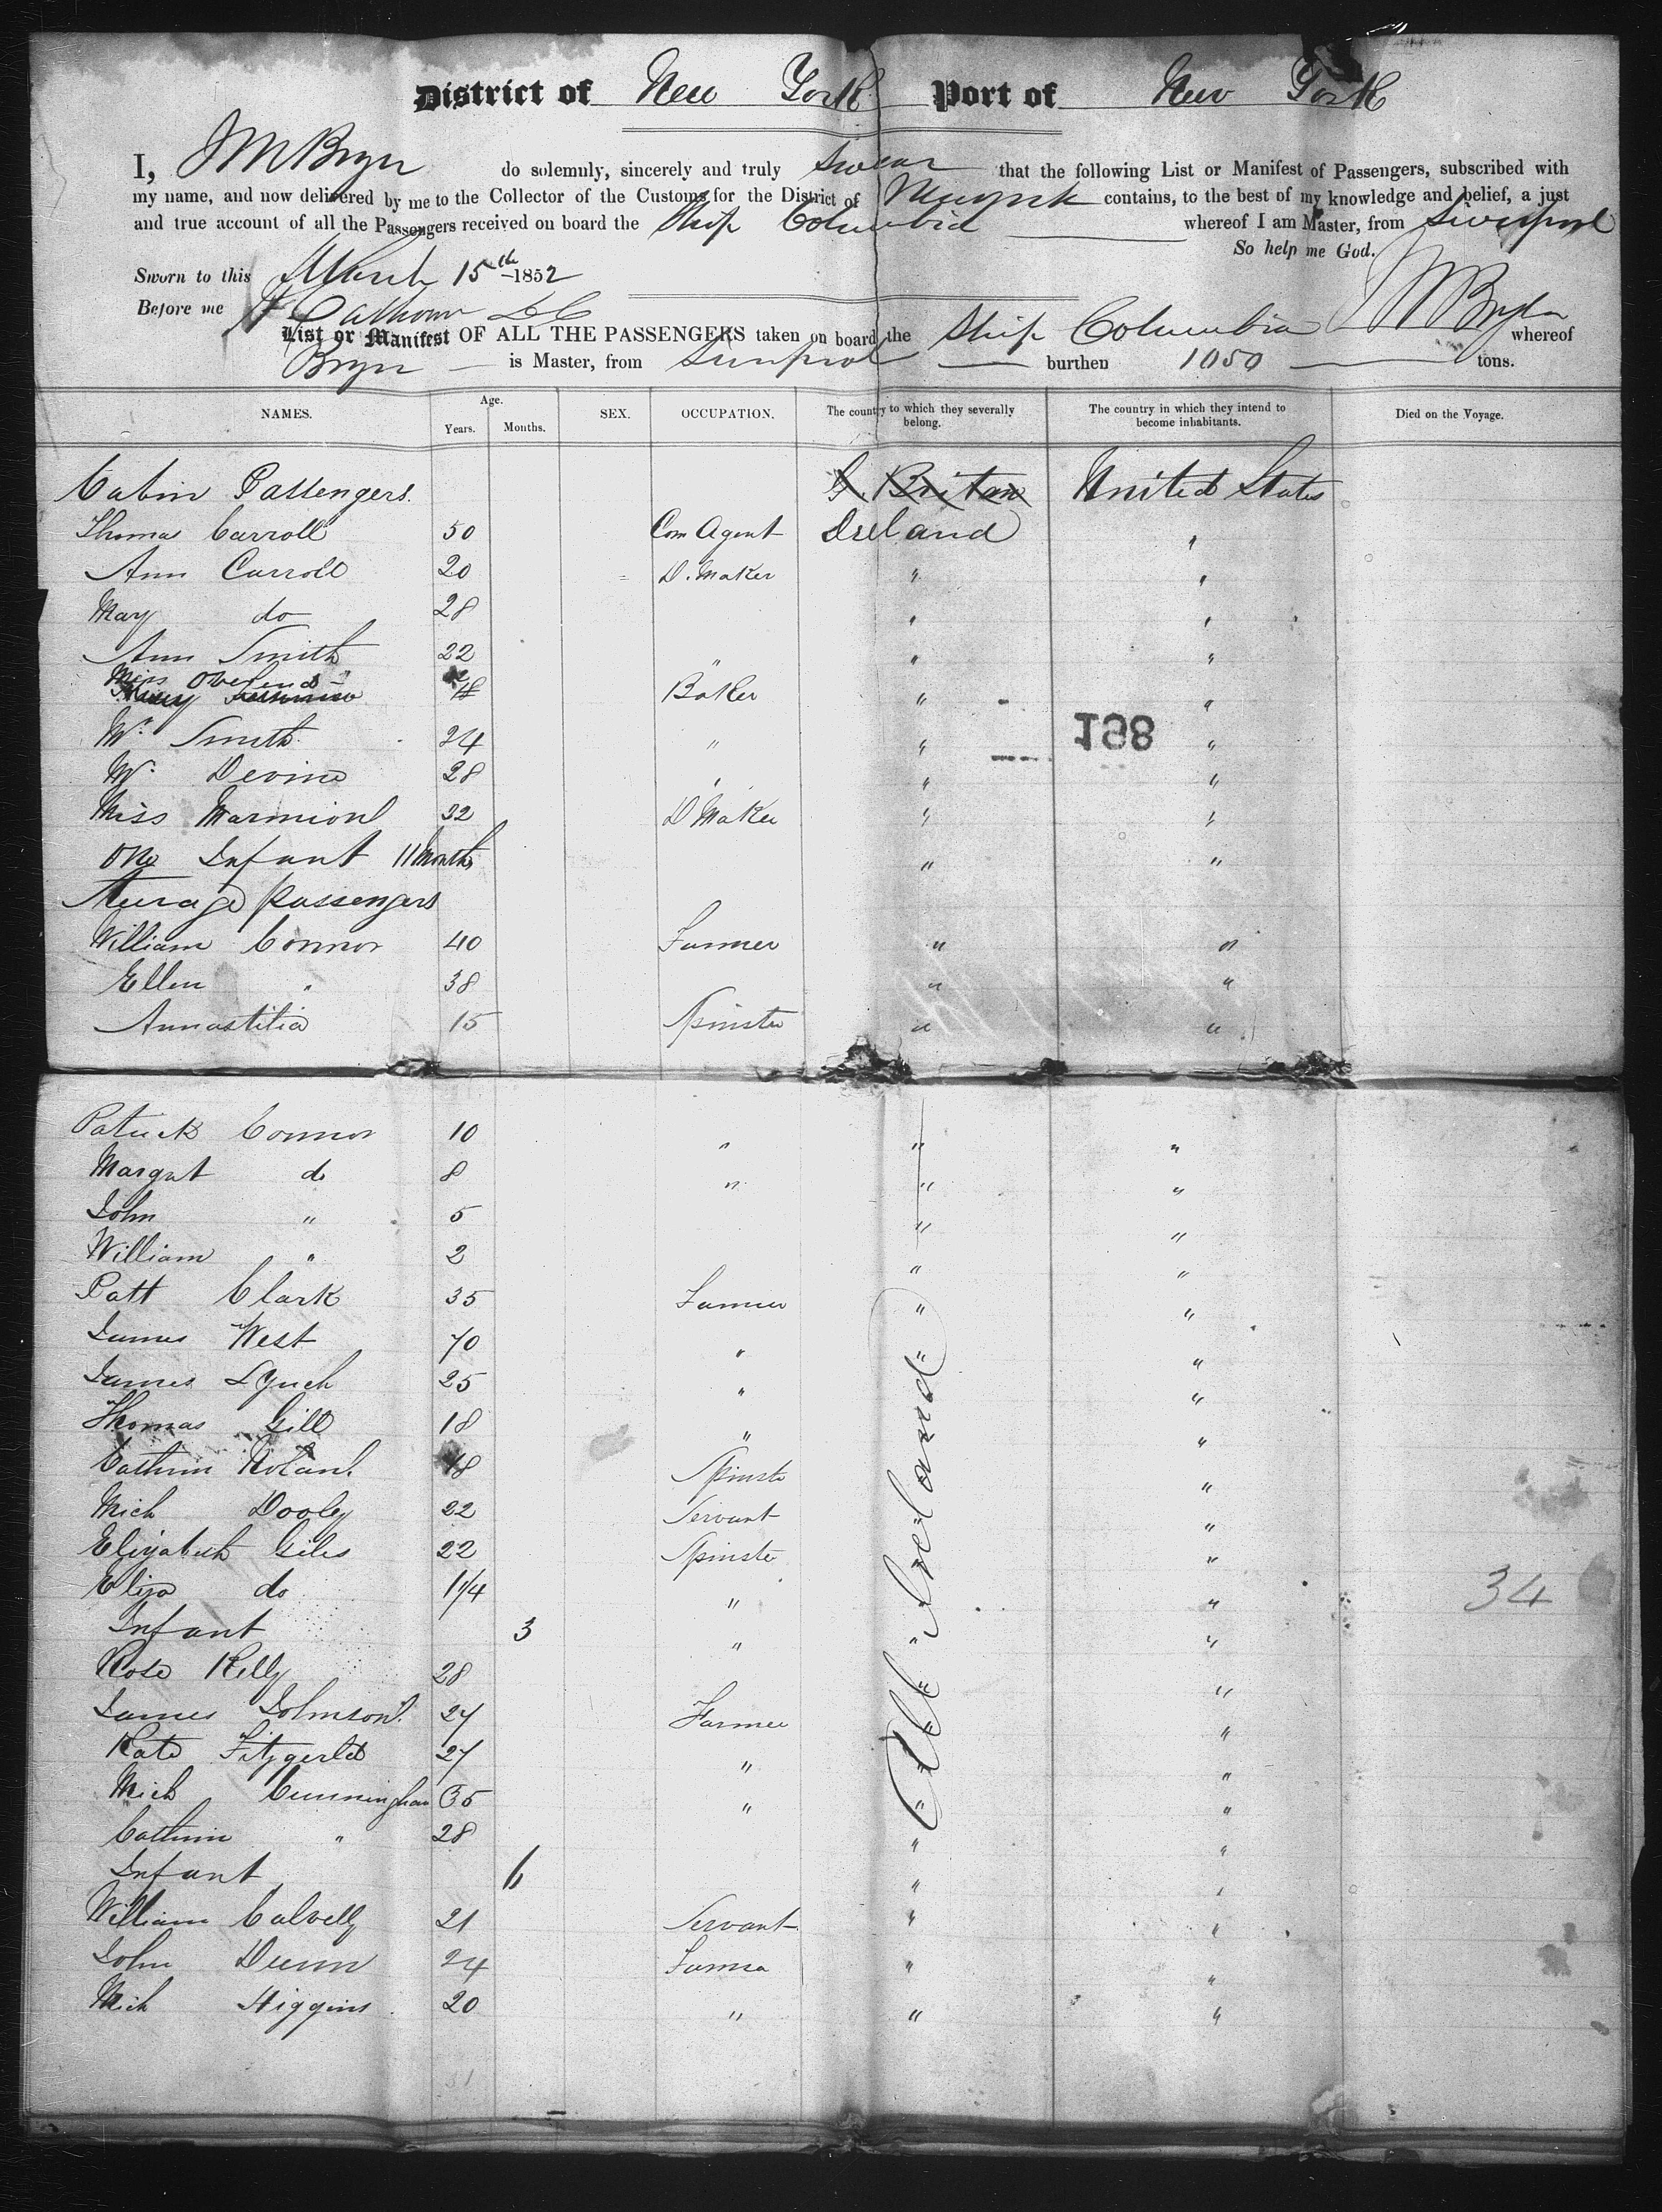 District of New York Port of New York
I, J M Bryer do solemnly, sincerely and truly swear that the following List or Manifest of Passengers, subscribed with
my name, and now delivered by me to the Collector of the Customs for the District of Newyork contains, to the best of my knowledge and belief, a just
and true account of all the Passengers received on board the Ship Columbia whereof I am Master, from Liverpool
So help me God.
Sworn to this March 15th 1852
Before me Calhoun DC
List or Manifest OF ALL THE PASSENGERS taken on board the Ship Columbia whereof
Bryer is Master, from Liverpool burthen 1050 tons.
NAMES. Age. Years. Months. SEX. OCCUPATION. The country to which they severally belong. The country in which they intend to become inhabitants. Died on the Voyage.
Cabin Passengers. G. Britan United States
Thomas Carroll 50 Com Agent Ireland "
Ann Carroll 20 D. Maker " "
Mary do 28 " "
Ann Smith 22 " " "
Miss Overend
18 Baker " "
Wm Smith 24 " " "
198
W. Devine 28 " " "
Miss Marmion 32 D Maker " "
One Infant 11 Months " "
Sturage passengers
William Connor 40 Farmer " "
Ellen " 38 " "
Annastitia 15 Spinster " "
Patrick Connor 10 " " "
Margrat do 8 " " "
John " 5 " "
William " 2 " "
Patt Clark 35 Farmer " "
James West 70 " " "
James Lynch 25 " "
Thomas Gill 18 " "
Cathrin Noland 18 Spinste "
Mich Dooley 22 Servant "
Elizabeth Giles 22 Spinste "
Eliza do 1 1/4 " "
34
Infant 3 " "
Rose Kelly 28 "
James Johnson 27 Farmer "
Kate Fitzgerld 27 " "
Mich Cunningham 35 " "
All Ireland
Cathrin " 28 " "
Infant 6 " "
William Calvelly 21 Servant " "
John Dunn 24 Farmer " "
Mich Higgins 20 " " "